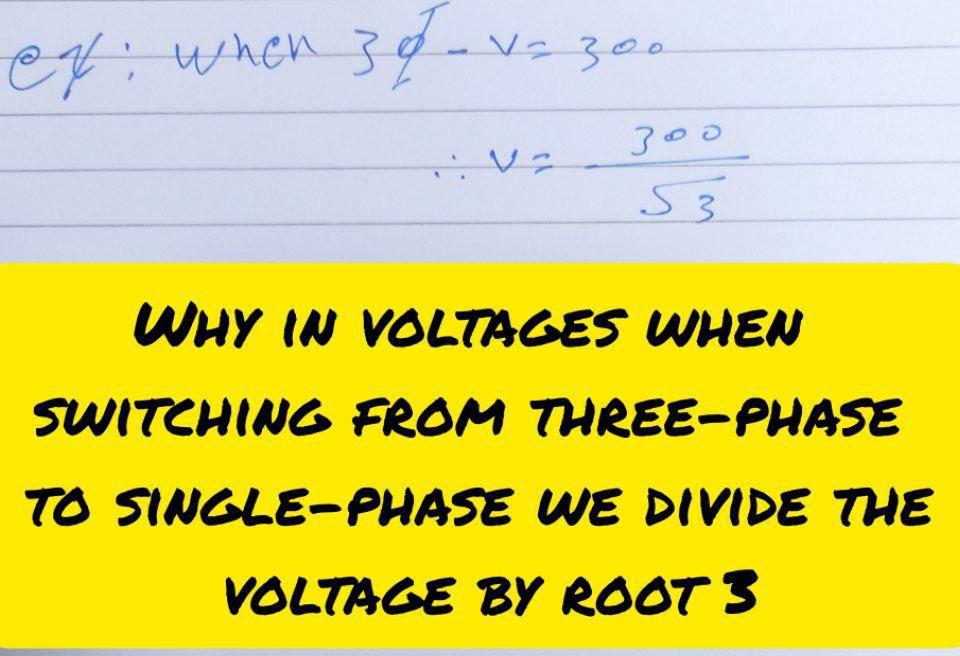 ex: when 3φ - V = 300
∴ V = 300/√3
WHY IN VOLTAGES WHEN
SWITCHING FROM THREE-PHASE
TO SINGLE-PHASE WE DIVIDE THE
VOLTAGE BY ROOT 3